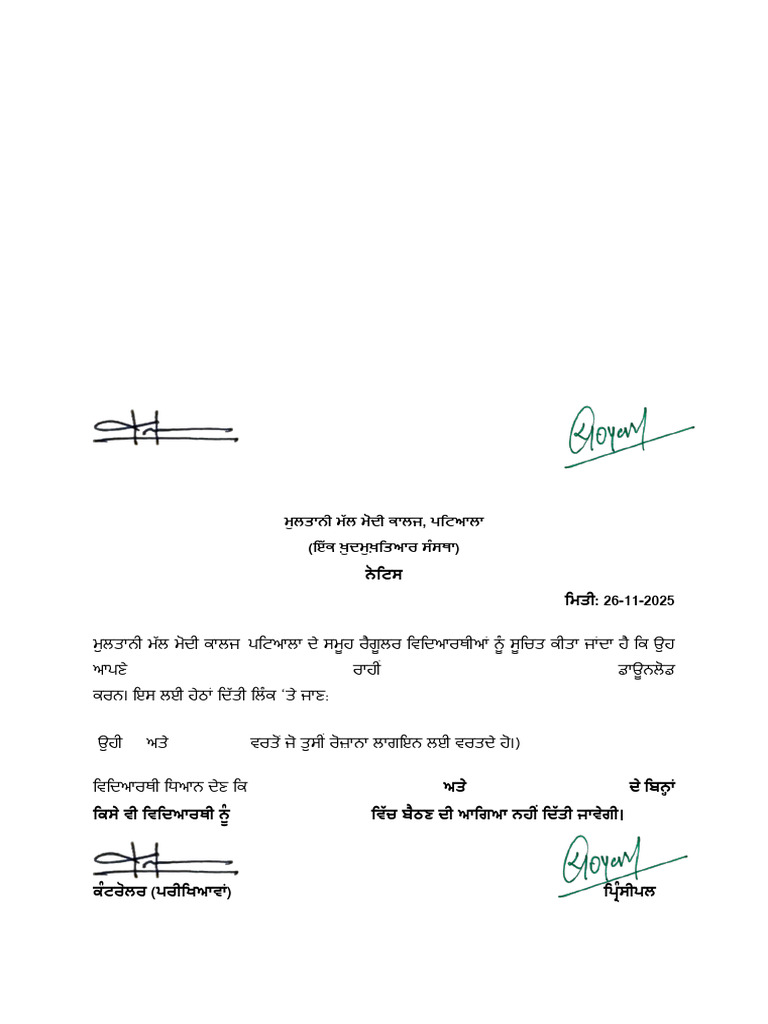 ਮੁਲਤਾਨੀ ਮੱਲ ਮੋਦੀ ਕਾਲਜ, ਪਟਿਆਲਾ
(ਇੱਕ ਖ਼ੁਦਮੁਖ਼ਤਿਆਰ ਸੰਸਥਾ)
ਨੋਟਿਸ
ਮਿਤੀ: 26-11-2025
ਮੁਲਤਾਨੀ ਮੱਲ ਮੋਦੀ ਕਾਲਜ ਪਟਿਆਲਾ ਦੇ ਸਮੂਹ ਰੈਗੂਲਰ ਵਿਦਿਆਰਥੀਆਂ ਨੂੰ ਸੂਚਿਤ ਕੀਤਾ ਜਾਂਦਾ ਹੈ ਕਿ ਉਹ
ਆਪਣੇ ਰਾਹੀਂ ਡਾਊਨਲੋਡ
ਕਰਨ। ਇਸ ਲਈ ਹੇਠਾਂ ਦਿੱਤੀ ਲਿੰਕ ‘ਤੇ ਜਾਣ:
ਉਹੀ ਅਤੇ ਵਰਤੋਂ ਜੋ ਤੁਸੀਂ ਰੋਜ਼ਾਨਾ ਲਾਗਇਨ ਲਈ ਵਰਤਦੇ ਹੋ।)
ਵਿਦਿਆਰਥੀ ਧਿਆਨ ਦੇਣ ਕਿ ਅਤੇ ਦੇ ਬਿਨ੍ਹਾਂ
ਕਿਸੇ ਵੀ ਵਿਦਿਆਰਥੀ ਨੂੰ ਵਿੱਚ ਬੈਠਣ ਦੀ ਆਗਿਆ ਨਹੀਂ ਦਿੱਤੀ ਜਾਵੇਗੀ।
ਕੰਟਰੋਲਰ (ਪਰੀਖਿਆਵਾਂ) ਪ੍ਰਿੰਸੀਪਲ